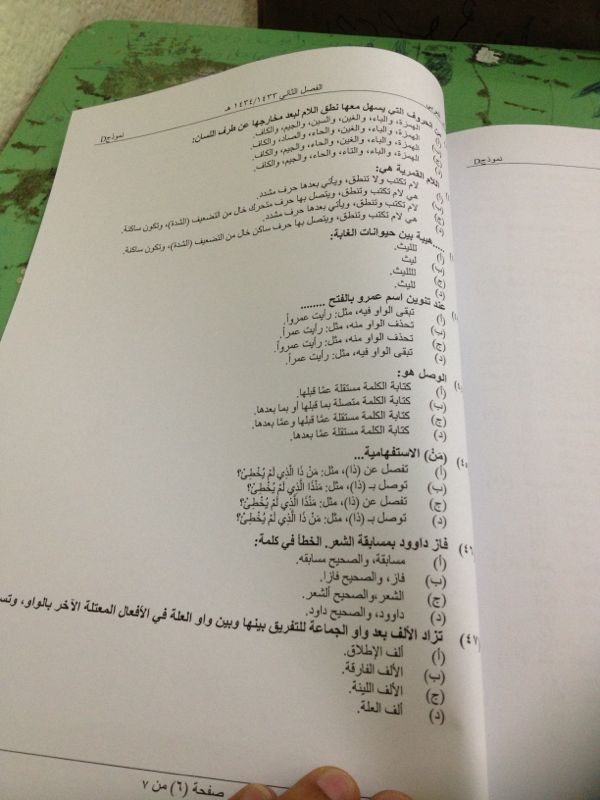 الفصل الثاني ١٤٣٤/١٤٣٣ هـ
نموذجD
الحروف التي يسهل معها نطق اللام لبعد مخارجها عن طرف اللسان:
الهمزة، والباء، والغين، والسين، والجيم، والكاف.
الهمزة، والباء، والغين، والحاء، والصاد، والكاف.
الهمزة، والباء، والغين، والحاء، والجيم، والكاف.
الهمزة، والباء، والتاء، والحاء، والجيم، والكاف.
اللام القمرية هي:
لام تكتب ولا تنطق، ويأتي بعدها حرف مشدد.
هي لام تكتب وتنطق، ويتصل بها حرف متحرك خال من التضعيف (الشدة)، وتكون ساكنة.
لام تكتب وتنطق، ويأتي بعدها حرف مشدد.
هي لام تكتب وتنطق، ويتصل بها حرف ساكن خال من التضعيف (الشدة)، وتكون ساكنة.
.....هيبة بين حيوانات الغابة:
(أ) لليث.
(ب) ليث
(ج) لللیث.
(د) لليث.
عند تنوين اسم عمرو بالفتح ........
(أ) تبقى الواو فيه، مثل: رأيت عمرواً.
(ب) تحذف الواو منه، مثل: رأيت عمراً.
(ج) تحذف الواو منه، مثل: رأيت عمرواً.
(د) تبقى الواو فيه، مثل: رأيت عمراً.
الوصل هو:
(أ) كتابة الكلمة مستقلة عمّا قبلها.
(ب) كتابة الكلمة متصلة بما قبلها أو بما بعدها.
(ج) كتابة الكلمة مستقلة عمّا قبلها وعمّا بعدها.
(د) كتابة الكلمة مستقلة عمّا بعدها.
(مَنْ) الاستفهامية...
(أ) تفصل عن (ذا)، مثل: مَنْ ذَا الَّذِي لَمْ يُخْطِئْ؟
(ب) توصل بـ (ذا)، مثل: مَنْذَا الَّذِي لَمْ يُخْطِئْ؟
(ج) تفصل عن (ذا)، مثل: مَنْذَا الَّذِي لَمْ يُخْطِئْ؟
(د) توصل بـ (ذا)، مثل: مَنْ ذَا الَّذِي لَمْ يُخْطِئْ؟
(٤٦) فاز داوود بمسابقة الشعر. الخطأ في كلمة:
(أ) مسابقة، والصحيح مسابقه.
(ب) فاز، والصحيح فازا.
(ج) الشعر، والصحيح ألشعر.
(د) داوود، والصحيح داود.
(٤٧) تزاد الألف بعد واو الجماعة للتفريق بينها وبين واو العلة في الأفعال المعتلة الآخر بالواو، وتس
(أ) ألف الإطلاق.
(ب) الألف الفارقة.
(ج) الألف اللينة.
(د) ألف العلة.
صفحة (٦) من ٧
نموذجD